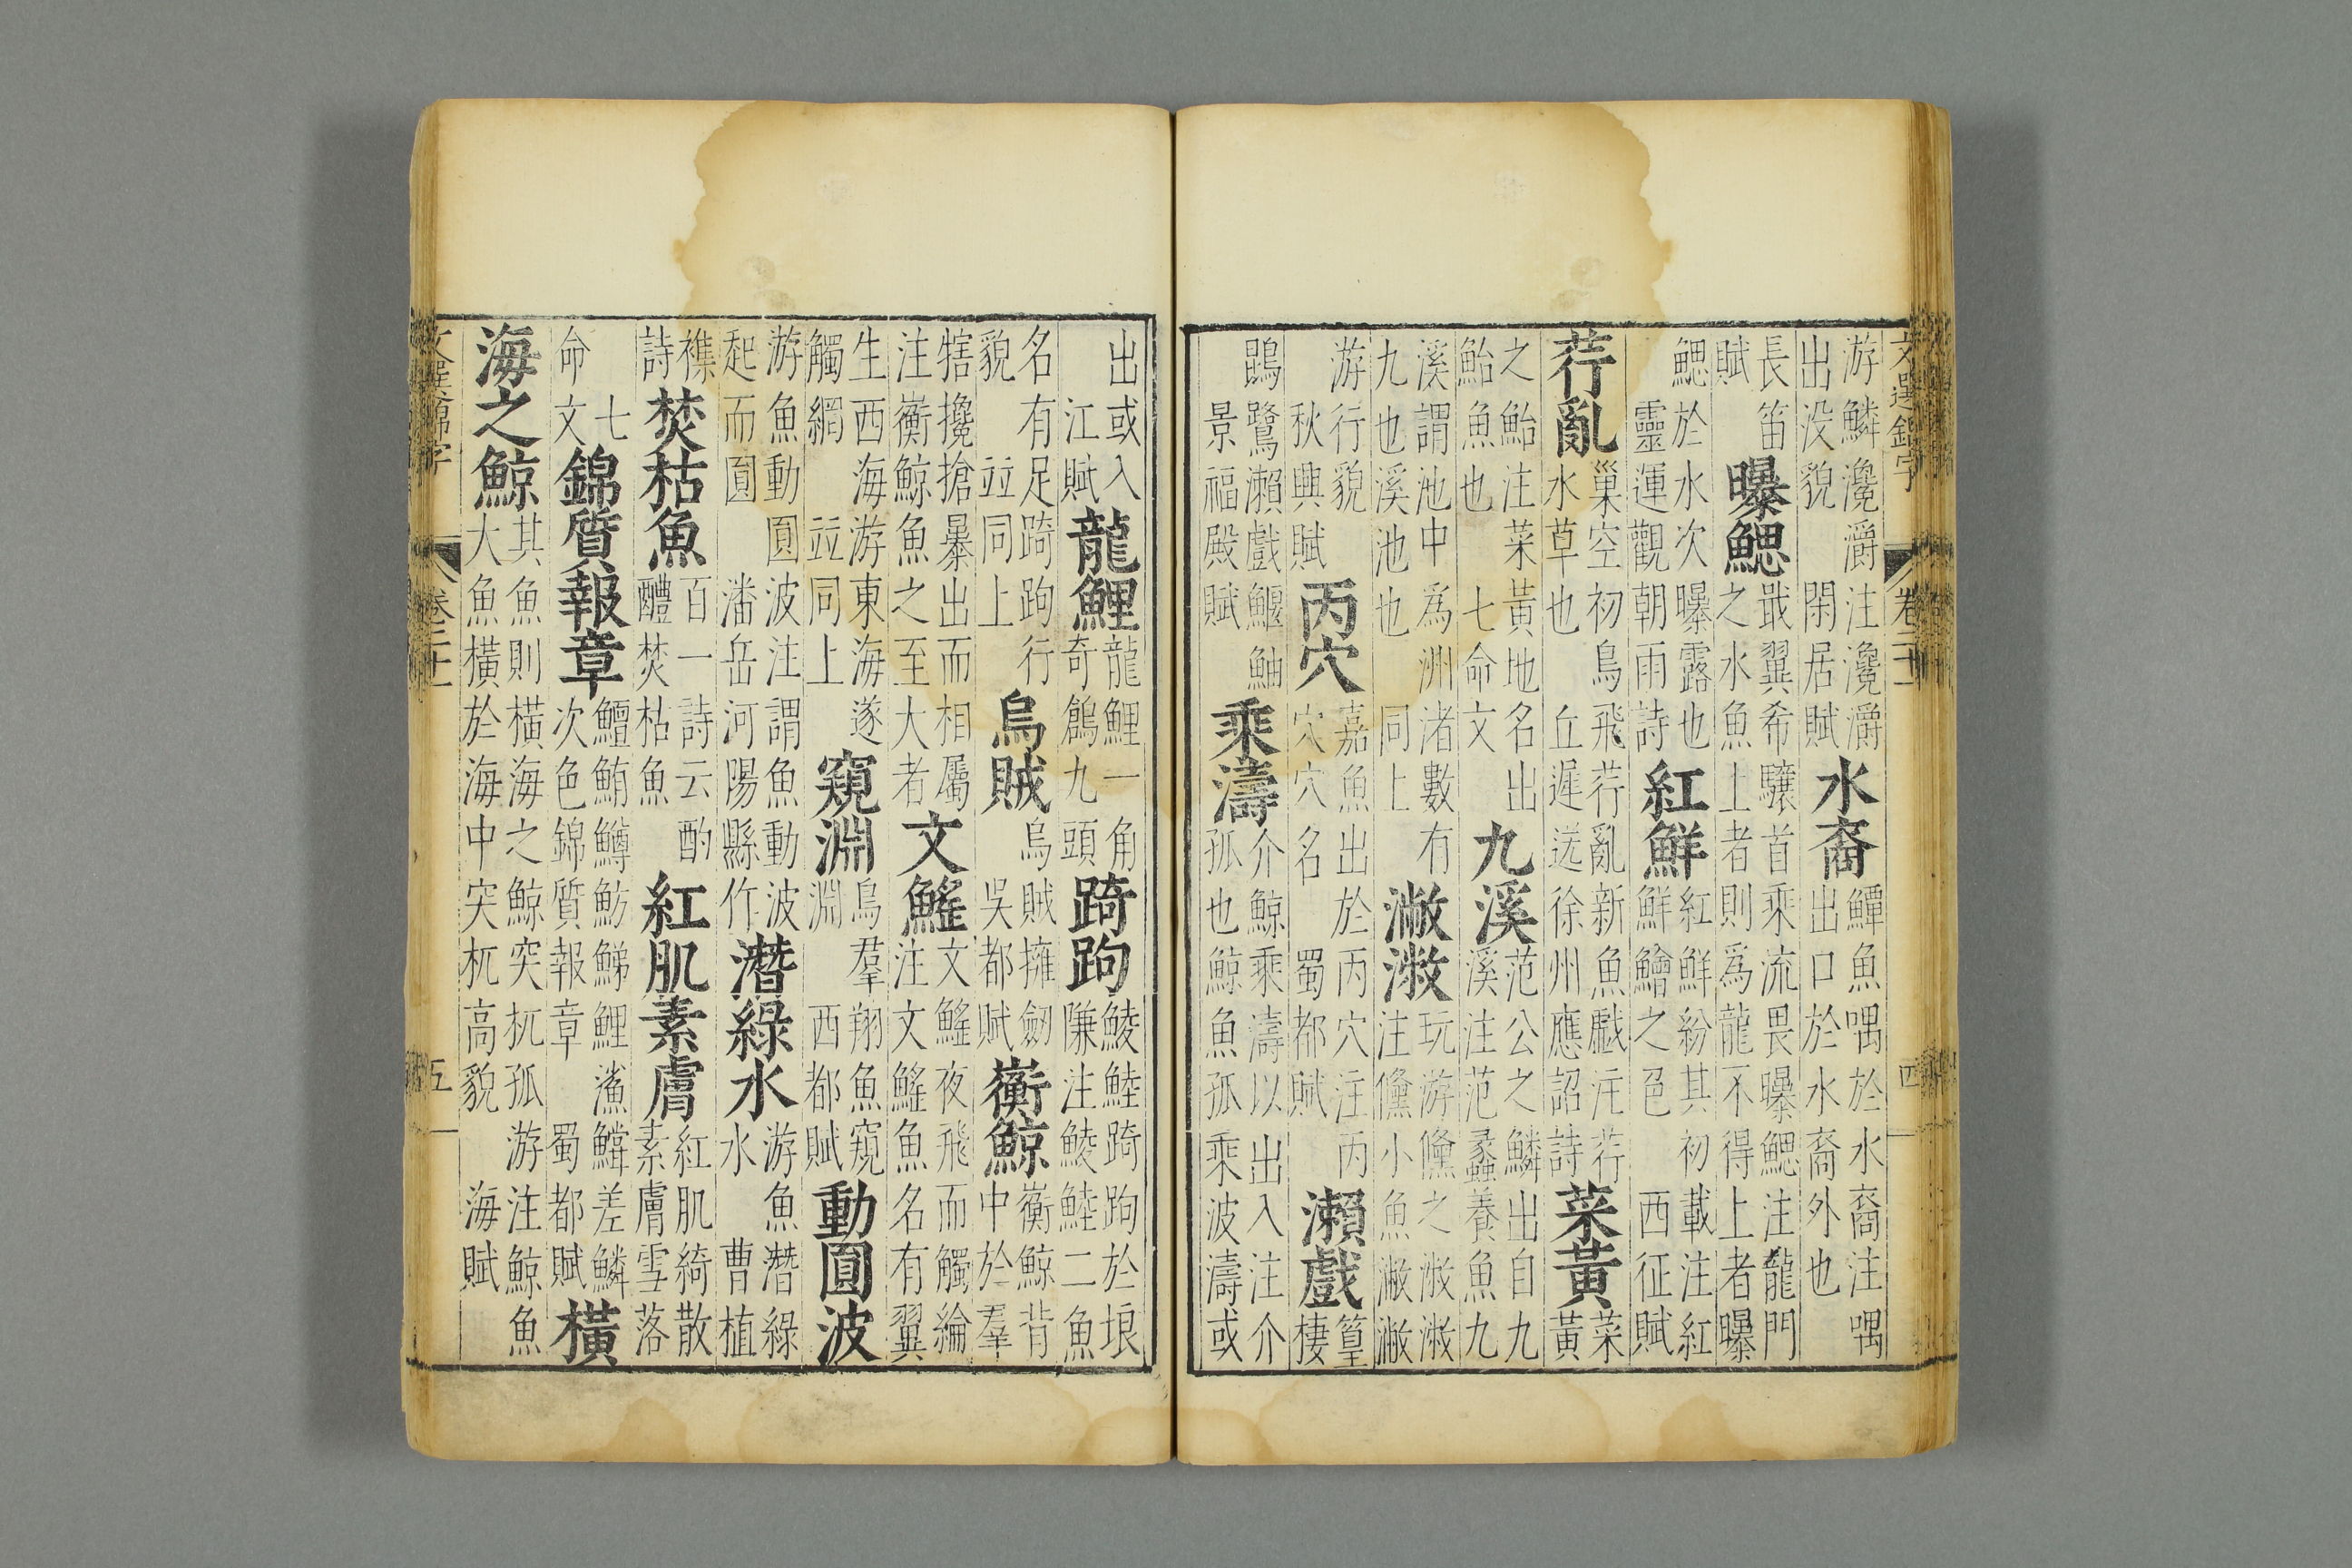 文選錦字 卷二十一 四
游鱗瀺灂注瀺灂出没貌 閑居賦 水裔 鱏魚喁於水裔注喁出口於水裔外也
長笛賦 曝鰓 戢翼希驤首乘流畏曝鰓注龍門之水魚上者則爲龍不得上者曝
鰓於水次曝露也 靈運觀朝雨詩 紅鮮 紅鮮紛其初載注紅鮮鱠之色 西征賦
荇亂 巢空初鳥飛荇亂新魚戲注荇水草也 丘遲送徐州應詔詩 菜黃 菜黃
之鮐注菜黃地名出鮐魚也 七命文 九溪 范公之鱗出自九溪注范蠡養魚九
溪謂池中爲洲渚數有九也溪池也 同上 潎潎 玩游儵之潎潎注儵小魚潎潎
游行貌 秋興賦 丙穴 嘉魚出於丙穴注丙穴穴名 蜀都賦 瀨戲 篁棲
鵾鷺瀨戲鰋鮋 景福殿賦 乘濤 介鯨乘濤以出入注介孤也鯨魚孤乘波濤或
出或入 江賦 龍鯉 龍鯉一角奇鶬九頭 踦跔 鯪鯥踦跔於垠隒注鯪鯥二魚
名有足踦跔行貌 並同上 烏賊 烏賊擁劒 吳都賦 衝鯨 衝鯨背中於羣
犗攙搶暴出而相屬注衝鯨魚之至大者 文鰩 文鰩夜飛而觸綸注文鰩魚名有翼
生西海游東海遂觸網 並同上 窺淵 鳥羣翔魚窺淵 西都賦 動圓波
游魚動圓波注謂魚動波起而圓 潘岳河陽縣作 潛綠水 游魚潛綠水 曹植
襍詩 焚枯魚 百一詩云酌醴焚枯魚 紅肌素膚 紅肌綺散素膚雪落
七命文 錦質報章 鱣鮪鱒魴鮷鯉鯊鱨差鱗次色錦質報章 蜀都賦 橫
海之鯨 其魚則橫海之鯨突杌孤游注鯨魚大魚橫於海中突杌高貌 海賦
文選錦字 卷二十一 五